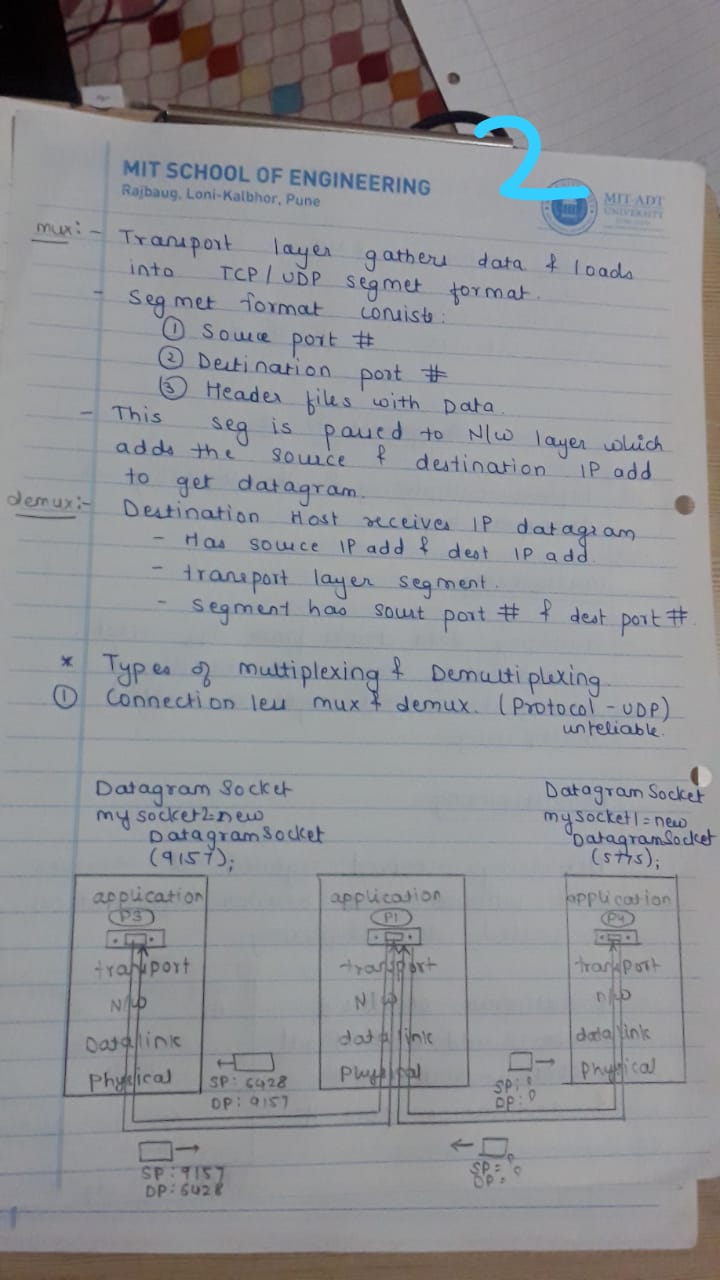 2
MIT SCHOOL OF ENGINEERING
Rajbaug, Loni-Kalbhor, Pune
MIT-ADT
UNIVERSITY
mux:- - Transport layer gathers data & loads
into TCP/UDP segmet format.
- Segmet format consists:
① Source port #
② Destination port #
③ Header files with Data.
- This seg is passed to N/W layer which
adds the source & destination IP add
to get datagram.
demux:- Destination Host receives IP datagram
- Has source IP add & dest IP add.
- transport layer segment.
- segment has sourt port # & dest port #.
* Types of multiplexing & Demultiplexing
① Connection less mux & demux. (Protocol - UDP)
unreliable.
Datagram Socket
my socket2=new
DatagramSocket
(9157);
Datagram Socket
mysocket1=new
DatagramSocket
(5775);
application
P3
transport
N/W
Data link
Physical
application
P1
transport
N/W
data link
Physical
application
P4
transport
n/w
data link
physical
SP: 6428
DP: 9157
SP: ?
DP: ?
SP: 9157
DP: 6428
SP= ?
DP: ?